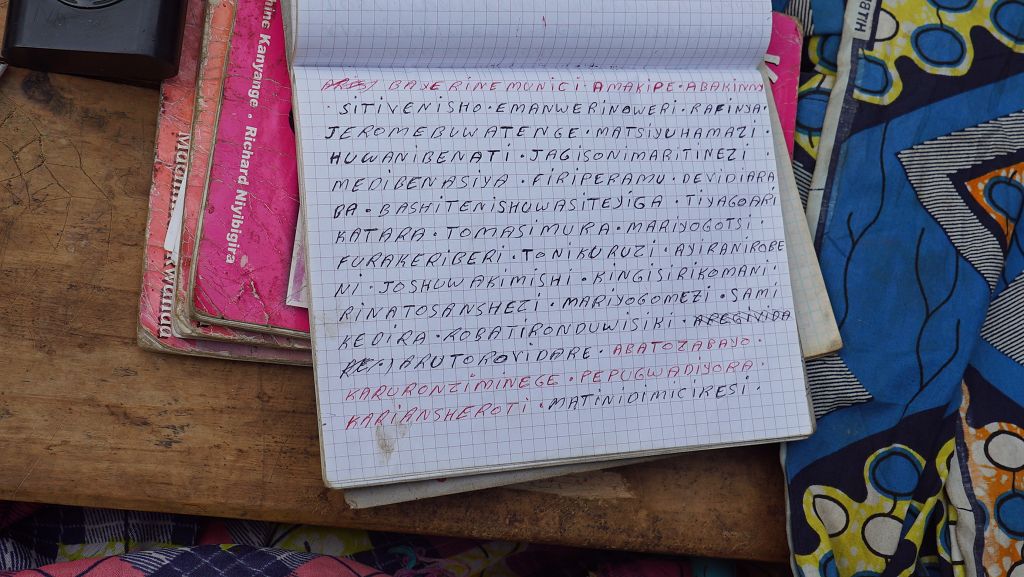 hine Kanyange • Richard Niyibigira
BAYERINEMUNICI AMAKIPE • ABAKINNYI
• SITIVENISHO • EMANWERINOWERI • RAFINYA •
JEROMEBUWATENGE • MATSIYUHAMAZI •
HUWANIBENATI • JAGISONIMARITINEZI
MEDIBENASIYA • FIRIPERAMU • DEVIDIARA
BA • BASHITENISHUWASITEYIGA • TIYAGOARI
KATARA • TOMASIMURA • MARIYOGOTSI
FURAKERIBERI • TONIKURUZI • AYIRANIROBE
NI • JOSHUWAKIMISHI • KINGISIRIKOMANI •
RINATOSANSHEZI • MARIYOGOMEZI • SAMI
KEDIRA • ROBATIRONDUWISIKI •
ARUTOROVIDARE • ABATOZABAYO •
KARURONZIMINEGE • PEPUGWADIYORA •
KARIANSHEROTI • MATINIDIMICIKESI •